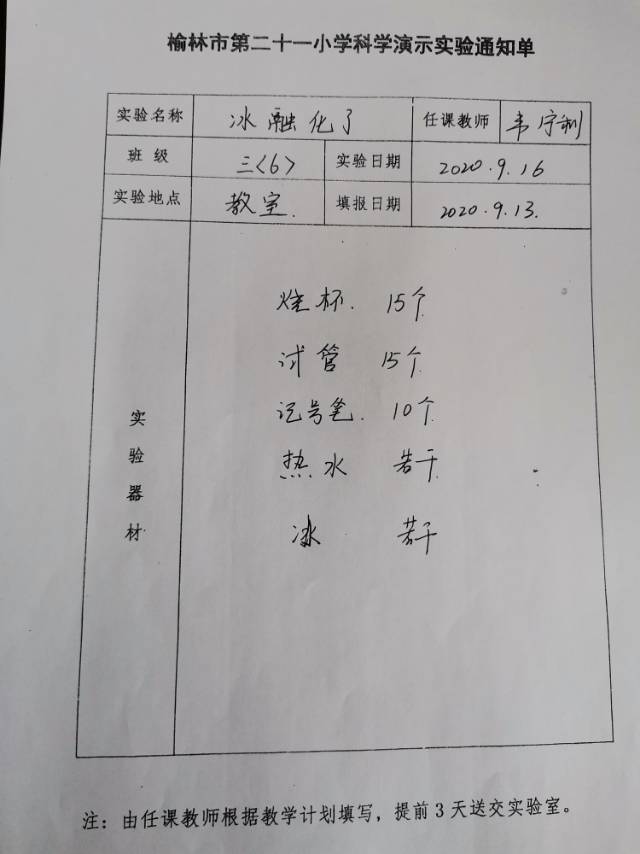 榆林市第二十一小学科学演示实验通知单
实验名称 冰融化了 任课教师 韦宇利
班级 三<6> 实验日期 2020.9.16
实验地点 教室. 填报日期 2020.9.13.
实验器材
烧杯. 15个
试管 15个
记号笔. 10个
热水 若干
冰 若干
注：由任课教师根据教学计划填写，提前3天送交实验室。